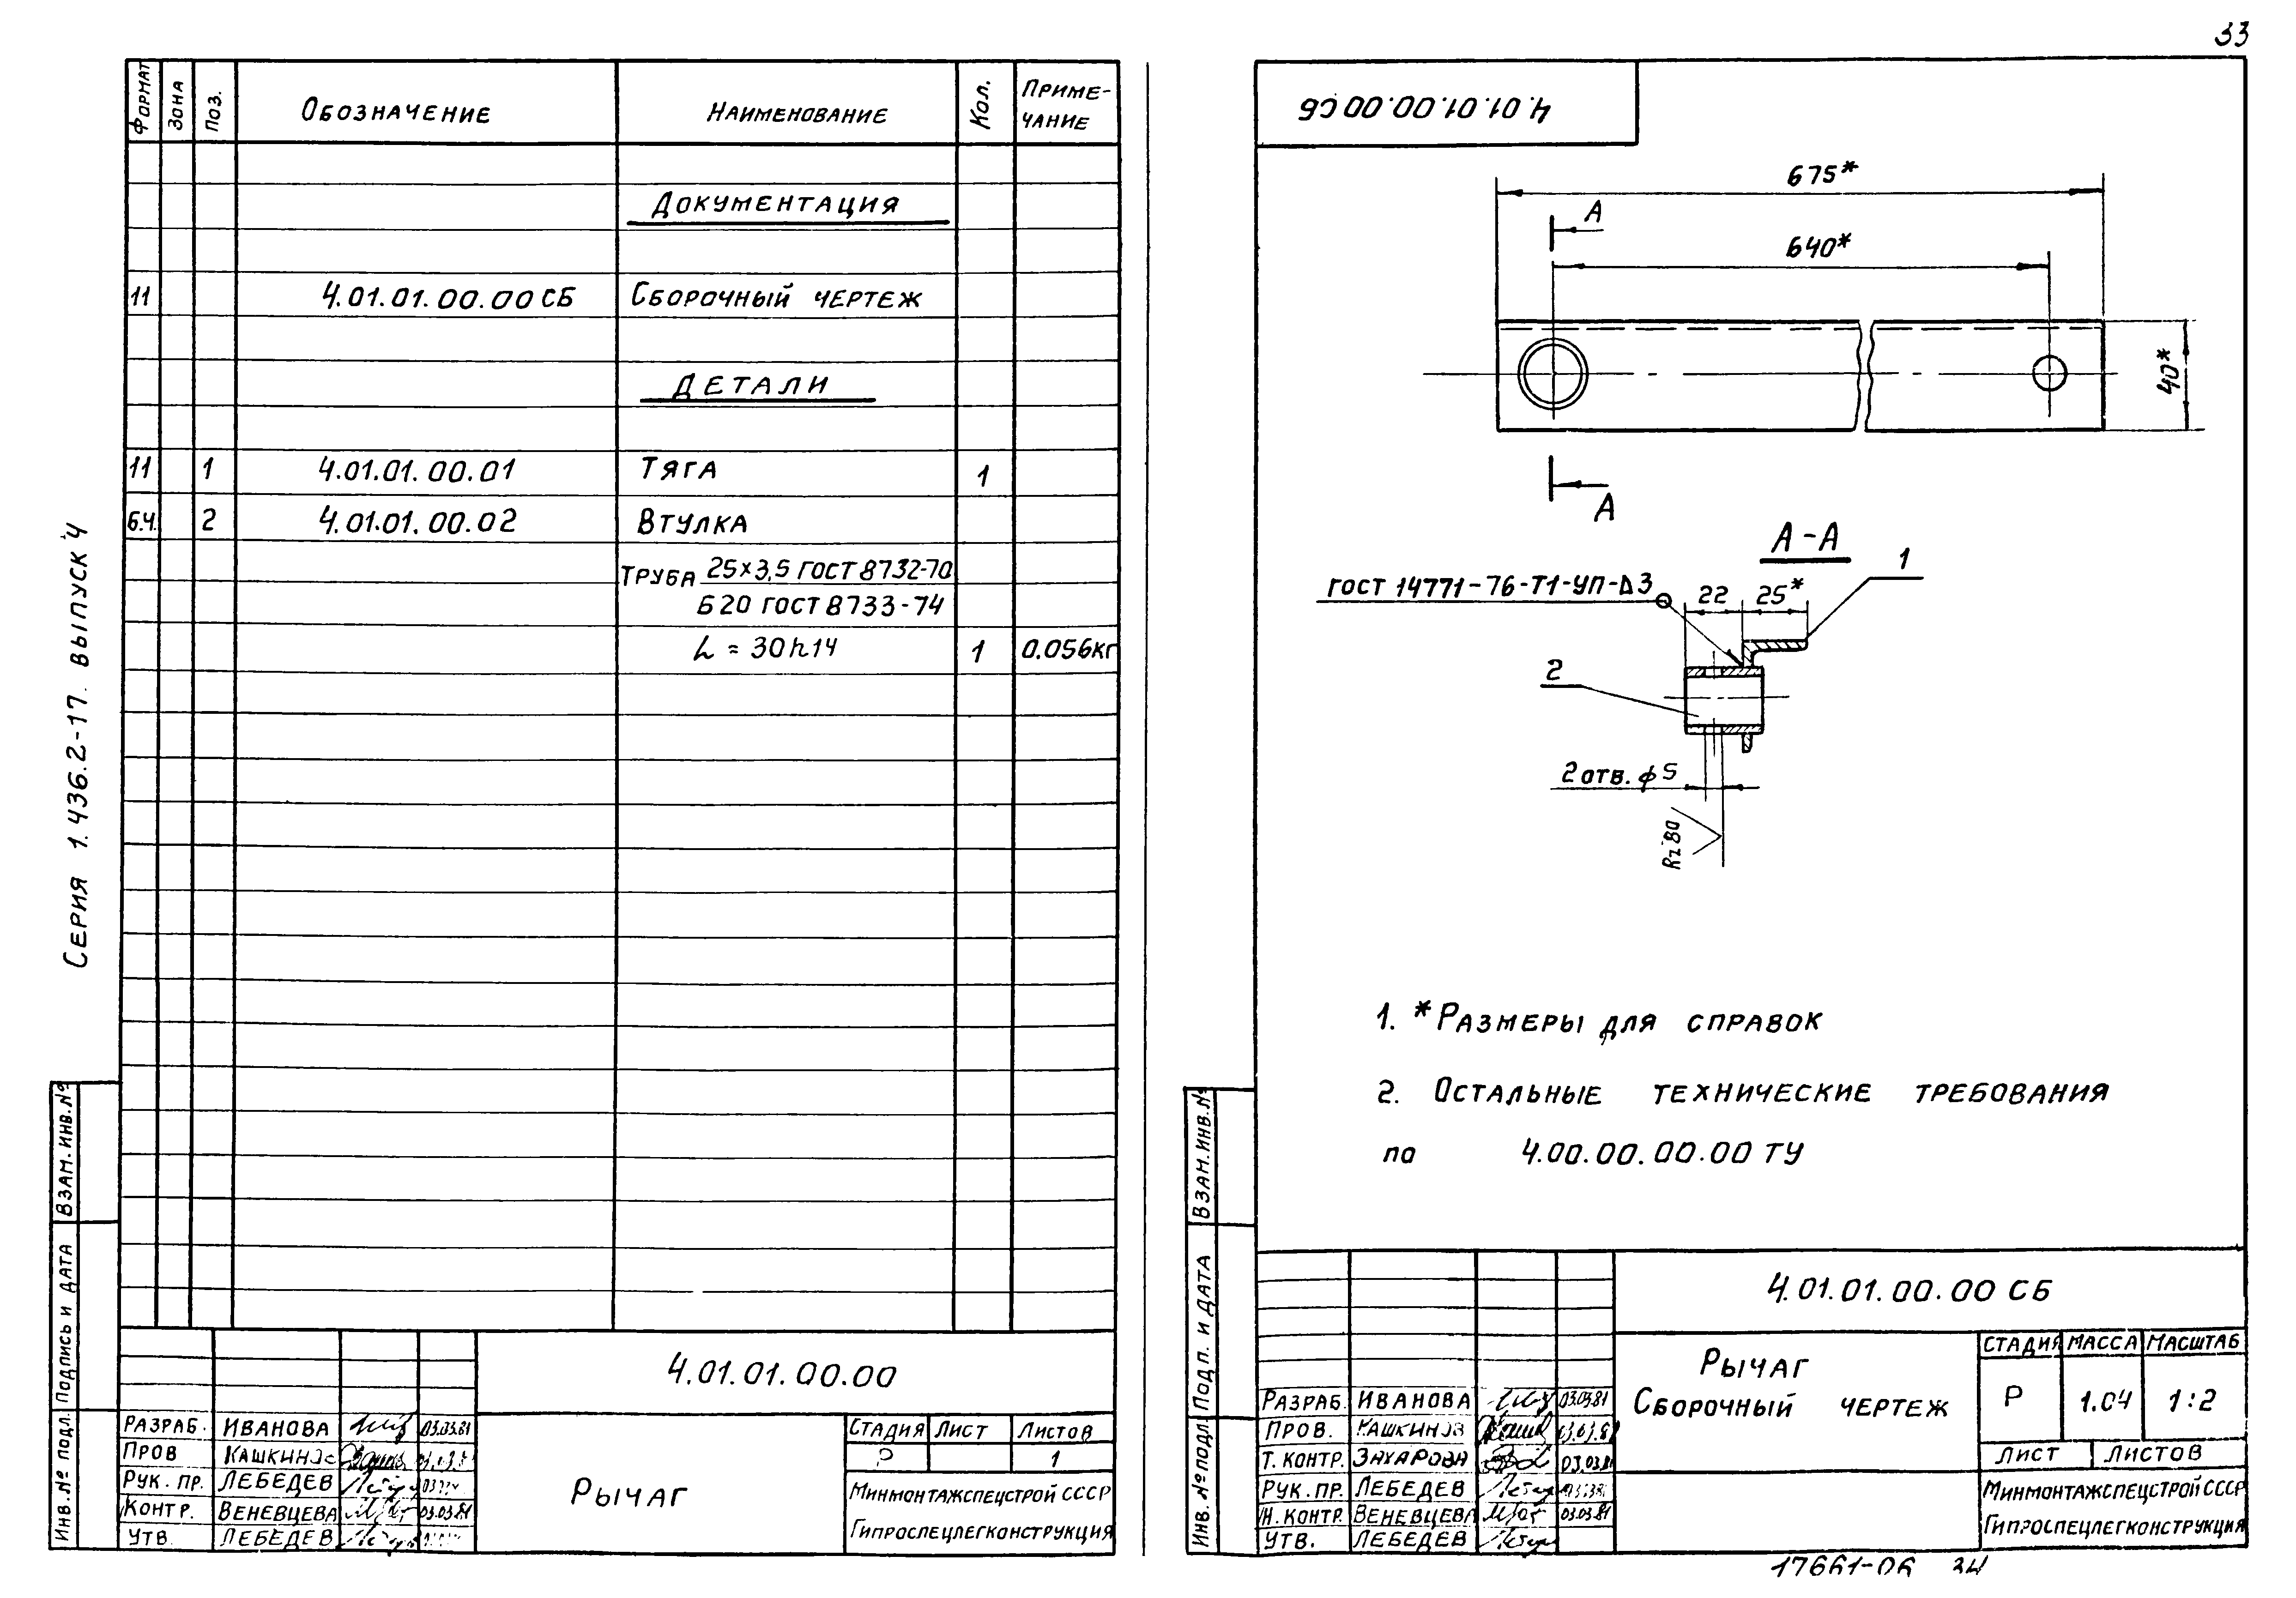 33
Серия 1.436.2-17. выпуск 4
Формат Зона Поз. Обозначение Наименование Кол. Приме-
чание
Документация
11 4.01.01.00.00 СБ Сборочный чертеж
Детали
11 1 4.01.01.00.01 Тяга 1
Б.Ч. 2 4.01.01.00.02 Втулка
Труба 25×3,5 ГОСТ 8732-70
Б20 ГОСТ 8733-74
L = 30h14 1 0.056кг
Взам.инв.№
Подпись и дата
Инв.№ подл.
4.01.01.00.00
Разраб. Иванова 03.03.81
Пров Кашкинов
Рук. пр. Лебедев
Контр. Веневцева 03.03.81
Утв. Лебедев
Рычаг
Стадия Лист Листов
Р 1
Минмонтажспецстрой СССР
Гипроспецлегконструкция
4.01.01.00.00 СБ
675*
А
640*
40*
А
А-А
1
ГОСТ 14771-76-Т1-УП-Δ3
22 25*
2
2 отв. ϕ5
Rz 80
1. *Размеры для справок
2. Остальные технические требования
по 4.00.00.00.00 ТУ
Взам.инв.№
Подп. и дата
Инв.№ подл.
4.01.01.00.00 СБ
Рычаг
Сборочный чертеж
Стадия Масса Масштаб
Р 1.04 1:2
Лист Листов
Разраб. Иванова 03.03.81
Пров. Кашкинов
Т. контр. Захарова 03.03.81
Рук. пр. Лебедев
Н. контр. Веневцева 03.03.81
Утв. Лебедев
Минмонтажспецстрой СССР
Гипроспецлегконструкция
17661-06 34